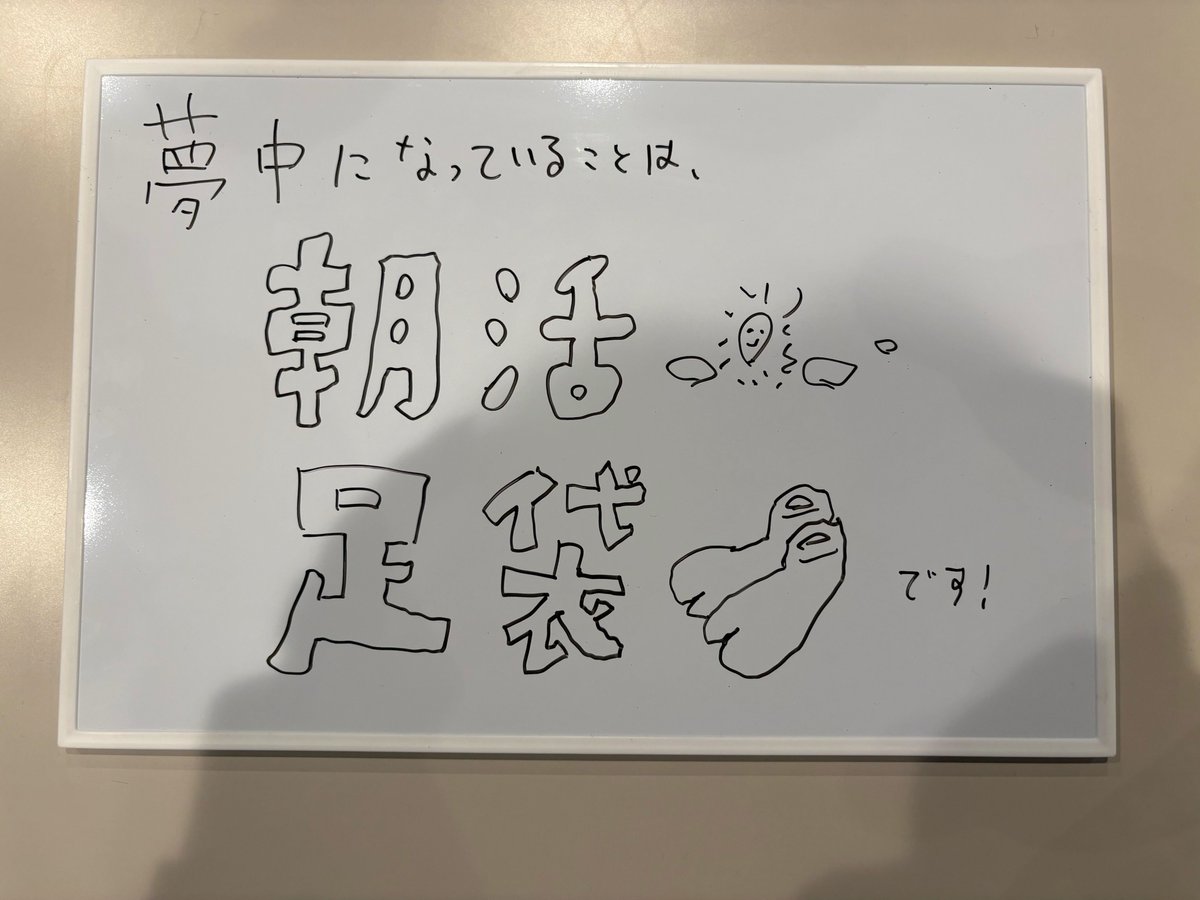 夢中になっていることは、
朝活。
足袋です!